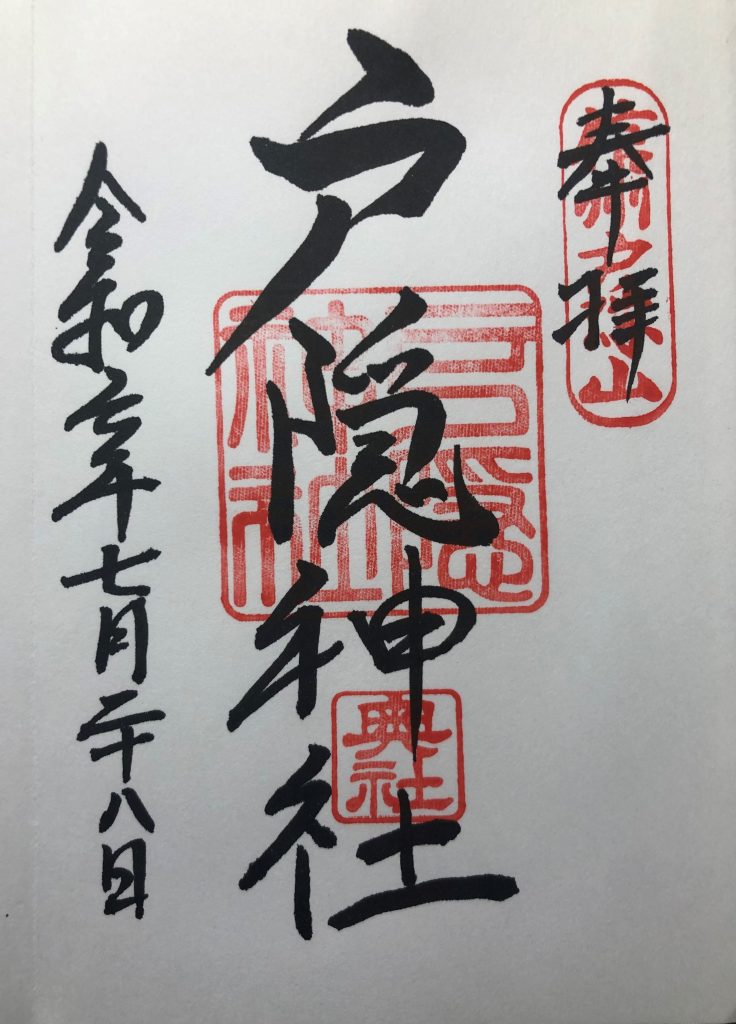 奉拝
信州戸隠山
戸隠神社
戸隠
神社
奥社
令和元年七月二十八日